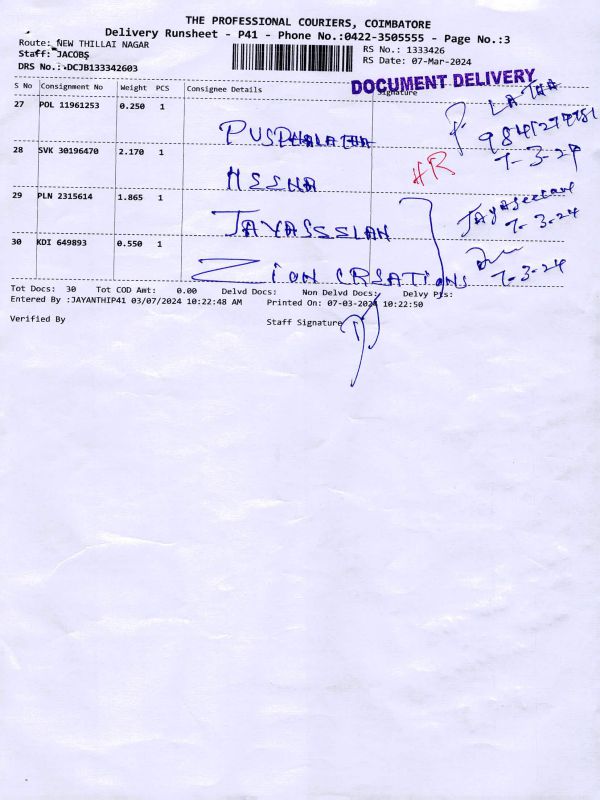 THE PROFESSIONAL COURIERS, COIMBATORE
Delivery Runsheet - P41 - Phone No.:0422-3505555 - Page No.:3
Route: NEW THILLAI NAGAR
RS No.: 1333426
Staff: JACOBS
RS Date: 07-Mar-2024
DRS No.: DCJB133342603
DOCUMENT DELIVERY
S No Consignment No Weight PCS Consignee Details Signature
27 POL 11961253 0.250 1
LATHA
7-3-24
28 SVK 30196470 2.170 1
HR
29 PLN 2315614 1.865 1
JAYASSSLAN
Jayaseelan
7-3-24
30 KDI 649893 0.550 1
ZION CRSATIONS
7-3-24
Tot Docs: 30 Tot COD Amt: 0.00 Delvd Docs: Non Delvd Docs: Delvy Pts:
Entered By :JAYANTHIP41 03/07/2024 10:22:48 AM Printed On: 07-03-2024 10:22:50
Verified By Staff Signature